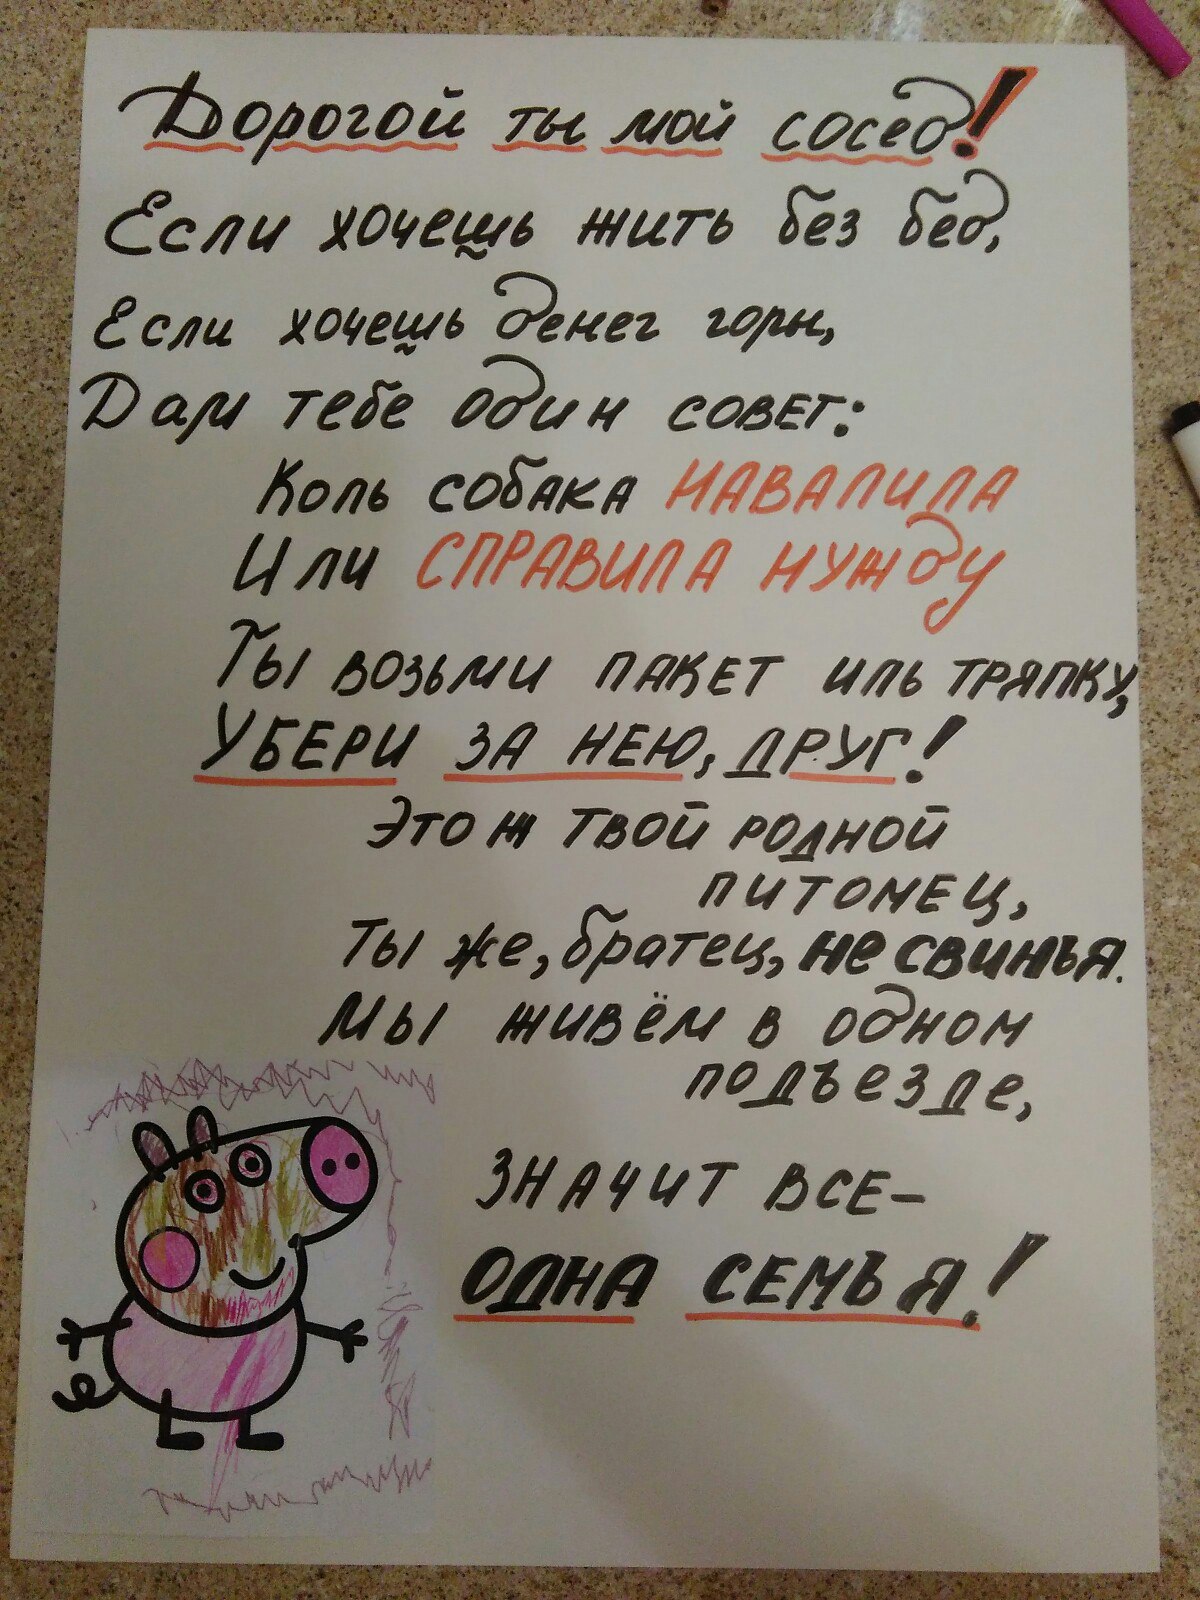 Дорогой ты мой сосед!
Если хочешь жить без бед,
Если хочешь денег горы,
Дам тебе один совет:
Коль собака НАВАЛИЛА
Или СПРАВИЛА НУЖДУ
Ты возьми пакет иль тряпку,
УБЕРИ ЗА НЕЮ, ДРУГ!
Это ж твой родной
питомец,
Ты же, братец, не свинья.
Мы живём в одном
подъезде,
ЗНАЧИТ ВСЕ–
ОДНА СЕМЬЯ!